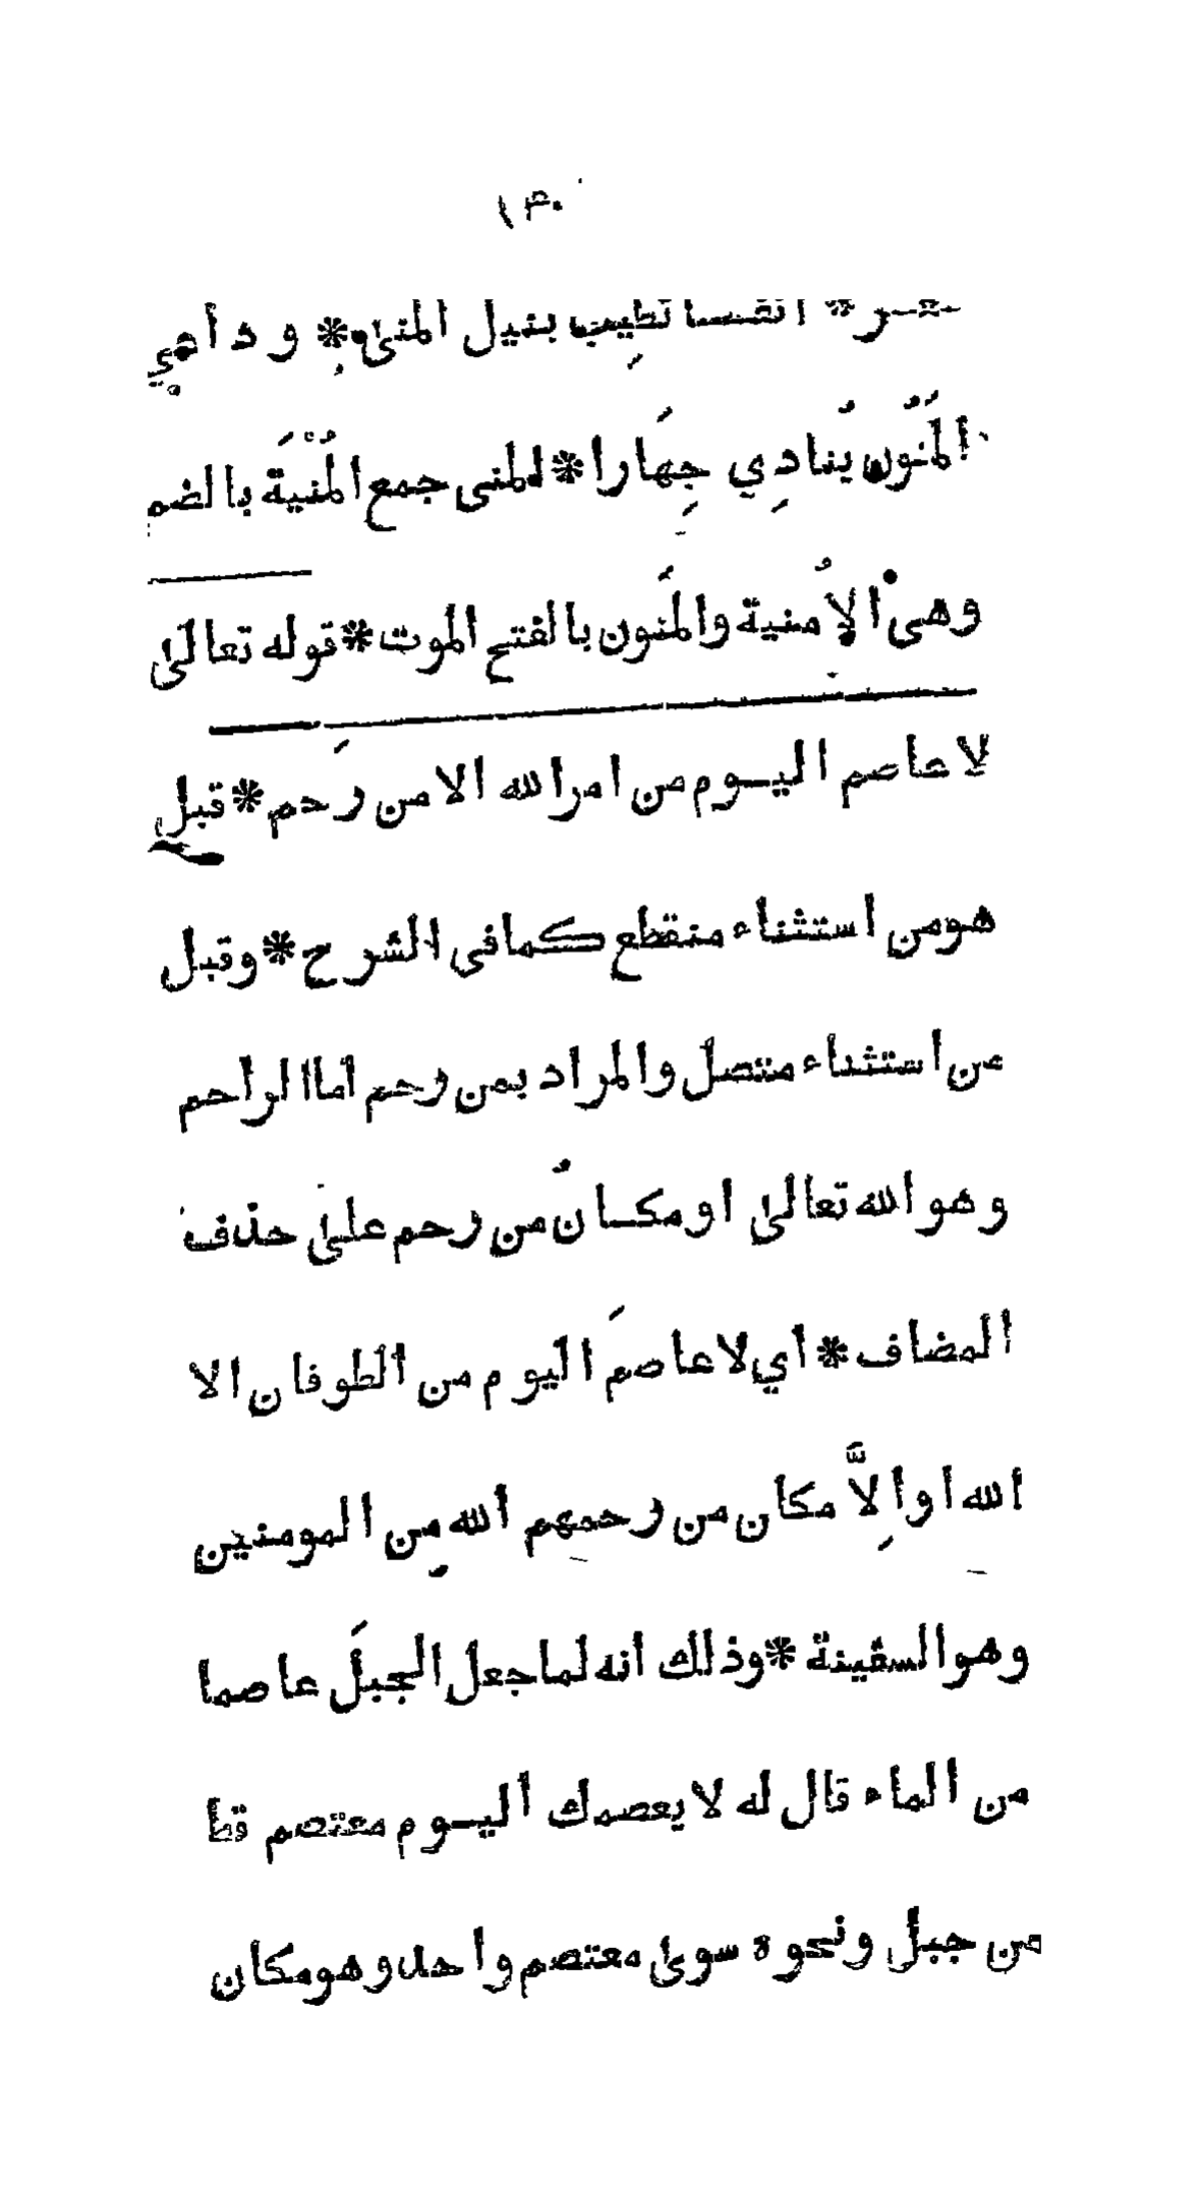 ١٣٠
أنفسا تطيب بنيل المنى * و داعي
المَنُون يُنادِي جِهَارا * المنى جمع المُنْيَة بالضم
وهى الاُمنية والمَنون بالفتح الموت * قوله تعالىٰ
لا عاصم اليــوم من امر الله الا من رَحم * قيل
هو من استثناء منقطع كما فى الشرح * وقيل
من استثناء متصل والمراد بمن رحم اما الراحم
وهو الله تعالىٰ او مكــان من رحم علىٰ حذف
المضاف * اي لا عاصمَ اليوم من الطوفان الا
الله او اِلاَّ مكان من رحمهم الله مِن المومنين
وهو السفينة * وذلك انه لما جعل الجبلَ عاصما
من الماء قال له لا يعصمك اليــوم معتصم قط
من جبل ونحوه سوىٰ معتصم واحد وهو مكان